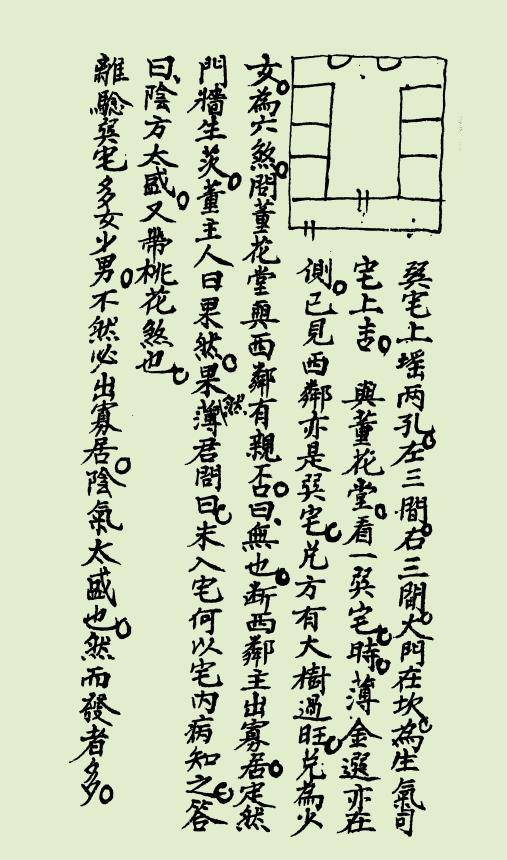 巽宅上塯两孔左三間右三間大門在坎為生氣司
宅上吉　與董花堂看一巽宅時薄金選亦在
側已見西鄰亦是巽宅兌方有大樹過旺兌為少
女為六煞問董花堂與西鄰有親否曰無也断西鄰主出寡居定然
門牆生茨董主人曰果然果然薄君問曰未入宅何以宅内病知之答
曰陰方太盛又帶桃花煞也
離驗巽宅多女少男不然必出寡居陰氣太盛也然而發者多